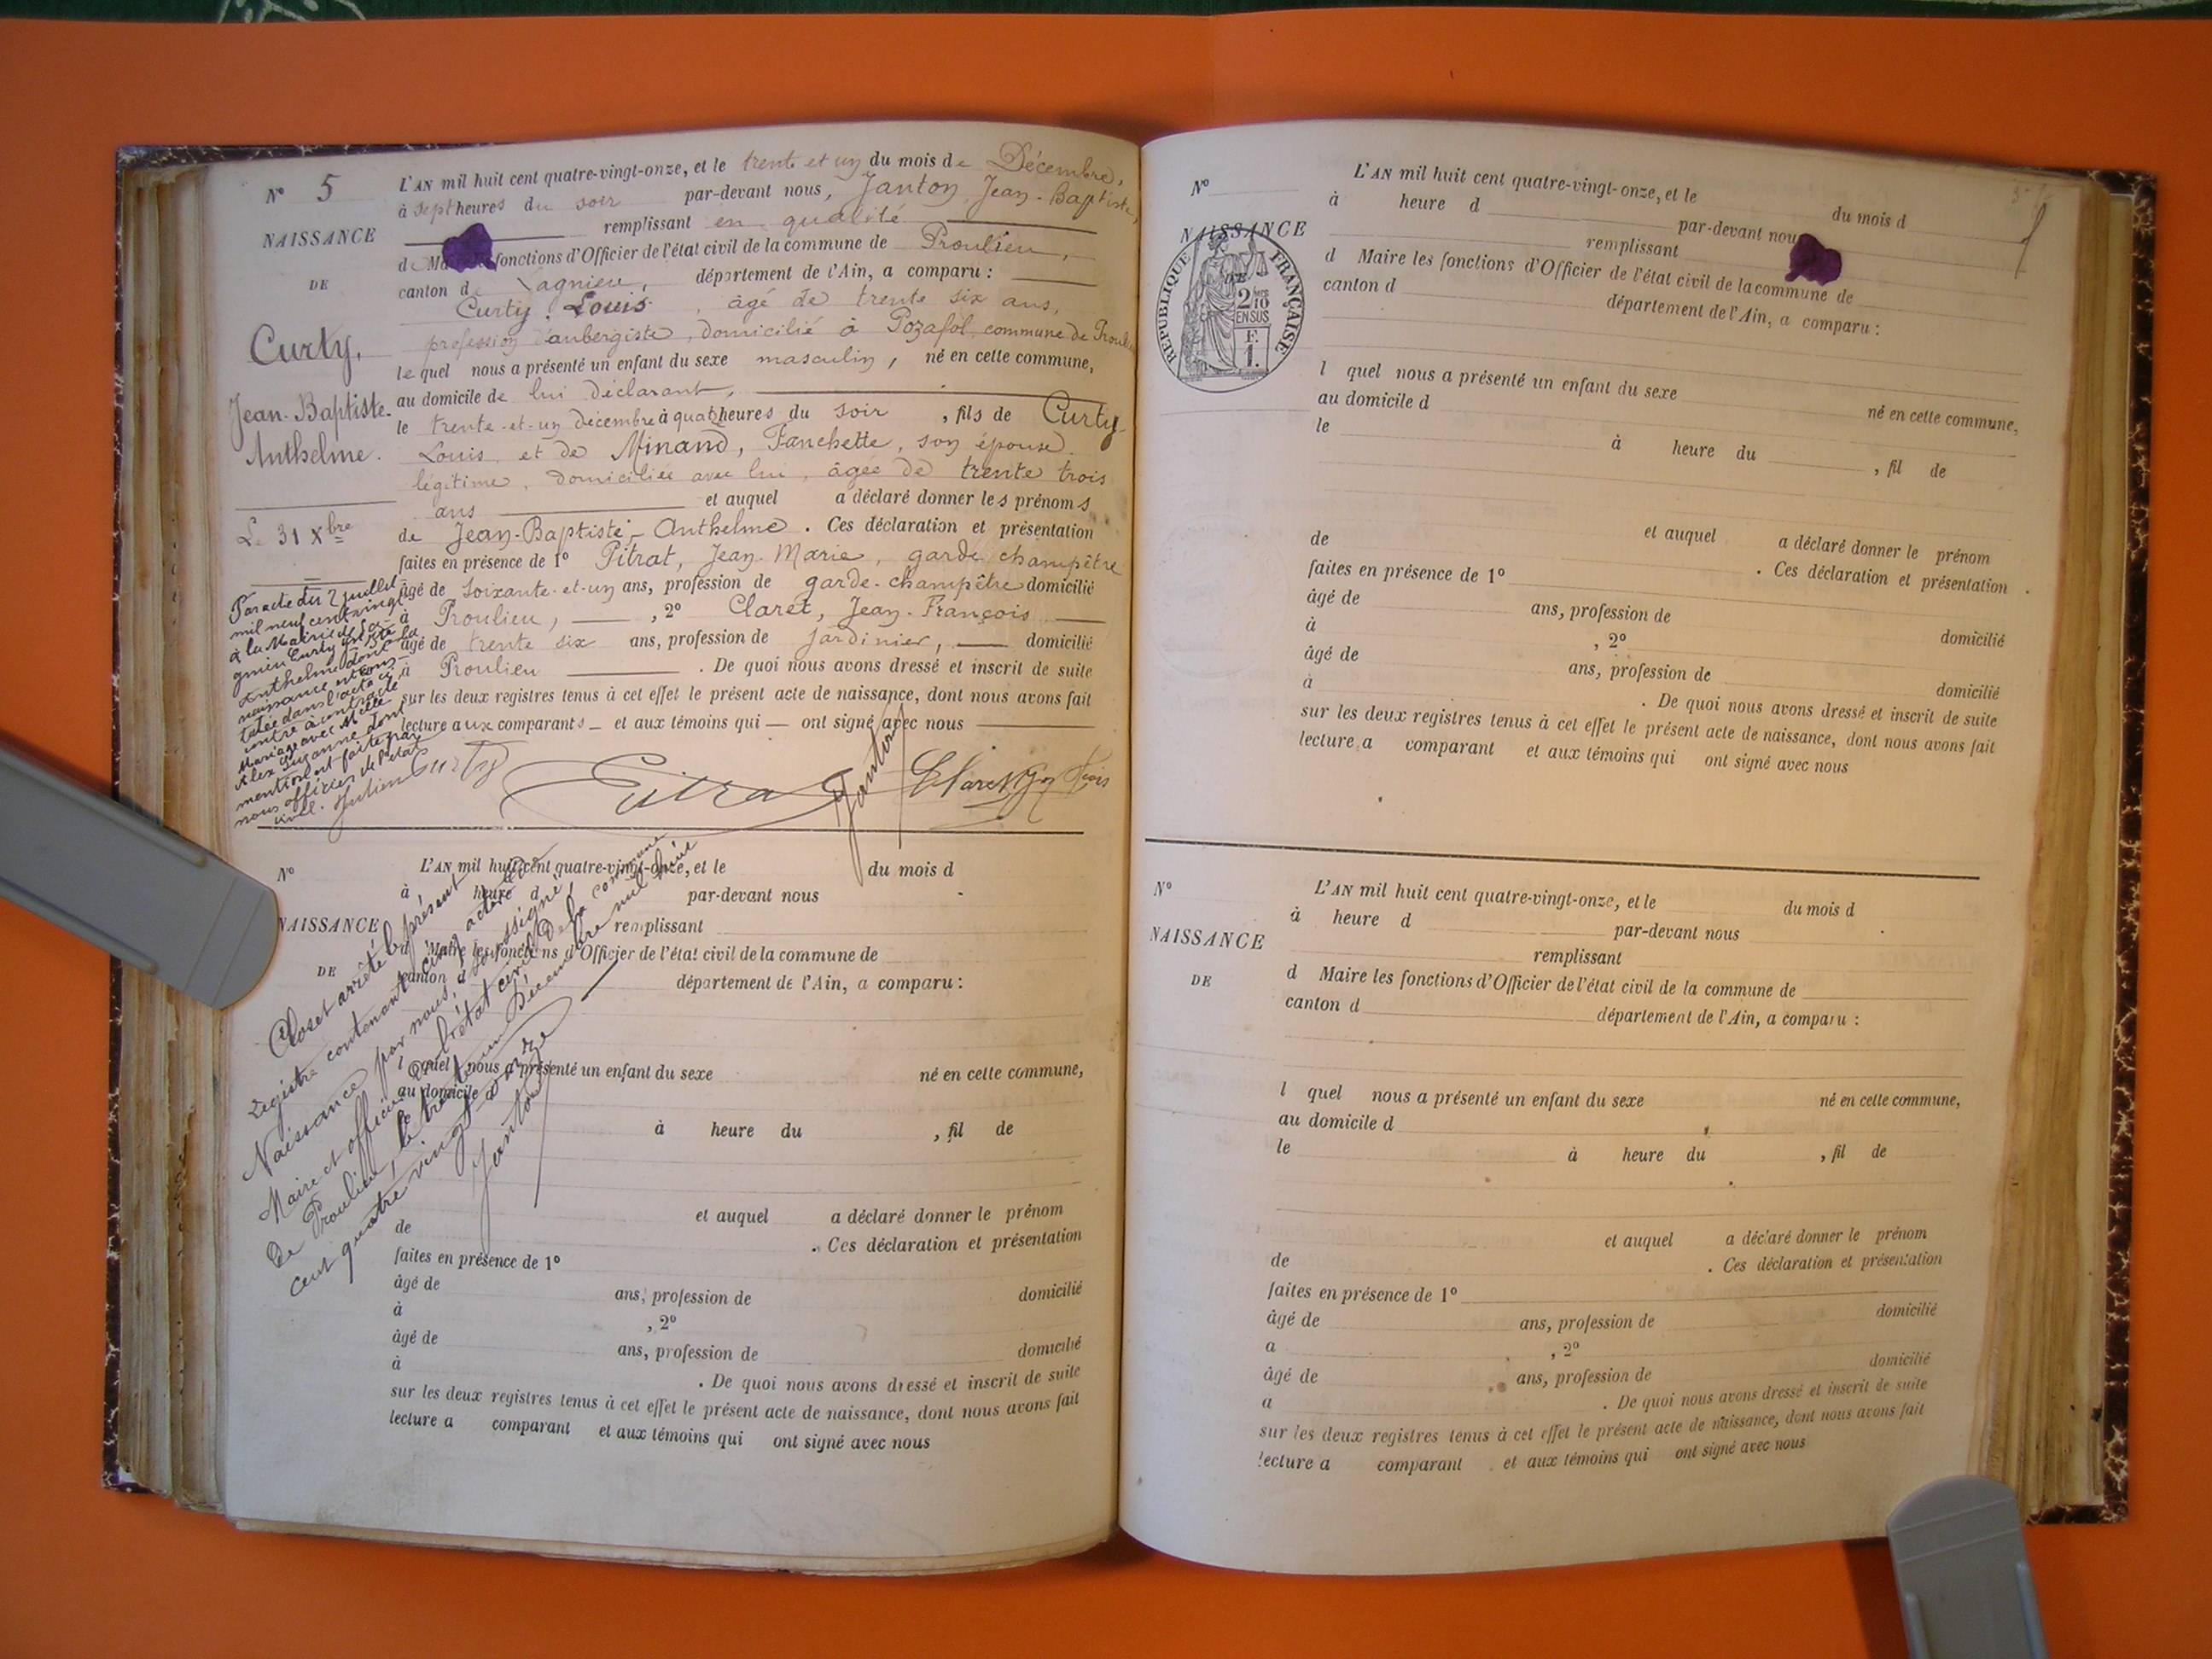 N° 5
NAISSANCE
DE
Curty,
Jean-Baptiste-
Anthelme.
Le 31 Xbre
L'AN mil huit cent quatre-vingt-onze, et le trente et un du mois de Décembre,
à sept heures du soir par-devant nous, Janton, Jean-Baptiste,
remplissant en qualité
de Maire les fonctions d'Officier de l'état civil de la commune de Proulieu,
canton de Lagnieu, département de l'Ain, a comparu :
Curty, Louis, âgé de trente six ans,
profession d'aubergiste, domicilié à Pozafol commune de Proulieu
lequel nous a présenté un enfant du sexe masculin, né en cette commune,
au domicile de lui déclarant,
le trente-et-un décembre à quatre heures du soir, fils de Curty
Louis et de Minand, Fanchette, son épouse
légitime, domiciliée avec lui, âgée de trente trois
ans et auquel a déclaré donner les prénoms
de Jean-Baptiste-Anthelme. Ces déclaration et présentation
faites en présence de 1° Pitrat, Jean-Marie, garde champêtre
âgé de soixante-et-un ans, profession de garde-champêtre domicilié
à Proulieu, , 2° Claret, Jean-François
âgé de trente six ans, profession de jardinier, domicilié
à Proulieu . De quoi nous avons dressé et inscrit de suite
sur les deux registres tenus à cet effet le présent acte de naissance, dont nous avons fait
lecture aux comparants et aux témoins qui ont signé avec nous
Par acte du 2 juillet
mil neuf cent vingt
à la Mairie de La-
gnieu Curty Jn Bte
Anthelme dont la
naissance est cons-
tatée dans l'acte ci
contre a contracté
Mariage avec Melle
Suzanne dont
mention est faite par
nous officier de l'état
civil.
Curty Pitrat Janton Claret
N°
NAISSANCE
DE
L'AN mil huit cent quatre-vingt-onze, et le du mois d
à heure d par-devant nous
remplissant
d Maire les fonctions d'Officier de l'état civil de la commune de
canton d département de l'Ain, a comparu :
l quel nous a présenté un enfant du sexe né en cette commune,
au domicile
le à heure du , fil de
et auquel a déclaré donner le prénom
de . Ces déclaration et présentation
faites en présence de 1°
âgé de ans, profession de domicilié
à , 2°
âgé de ans, profession de domicilié
à . De quoi nous avons dressé et inscrit de suite
sur les deux registres tenus à cet effet le présent acte de naissance, dont nous avons fait
lecture a comparant et aux témoins qui ont signé avec nous
Clos et arrêté le présent
registre contenant cinq actes de
Naissance par nous, soussigné,
Maire et officier de l'état civil de la commune
de Proulieu, le trente un Décembre mil huit
cent quatre vingt-onze
Janton
N°
NAISSANCE
DE
RÉPUBLIQUE FRANÇAISE
L'AN mil huit cent quatre-vingt-onze, et le du mois d
à heure d par-devant nous
remplissant
d Maire les fonctions d'Officier de l'état civil de la commune de
canton d département de l'Ain, a comparu :
l quel nous a présenté un enfant du sexe né en cette commune,
au domicile d
le à heure du , fil de
et auquel a déclaré donner le prénom
de . Ces déclaration et présentation
faites en présence de 1°
âgé de ans, profession de domicilié
à , 2°
âgé de ans, profession de domicilié
à . De quoi nous avons dressé et inscrit de suite
sur les deux registres tenus à cet effet le présent acte de naissance, dont nous avons fait
lecture a comparant et aux témoins qui ont signé avec nous
N°
NAISSANCE
DE
L'AN mil huit cent quatre-vingt-onze, et le du mois d
à heure d par-devant nous
remplissant
d Maire les fonctions d'Officier de l'état civil de la commune de
canton d département de l'Ain, a comparu :
l quel nous a présenté un enfant du sexe né en cette commune,
au domicile d
le à heure du , fil de
et auquel a déclaré donner le prénom
de . Ces déclaration et présentation
faites en présence de 1°
âgé de ans, profession de domicilié
a , 2°
âgé de ans, profession de domicilié
a . De quoi nous avons dressé et inscrit de suite
sur les deux registres tenus à cet effet le présent acte de naissance, dont nous avons fait
lecture a comparant et aux témoins qui ont signé avec nous